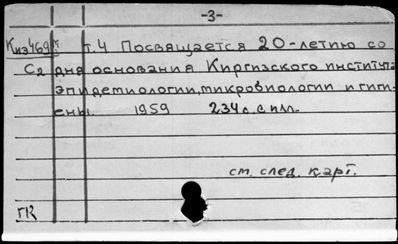 -3-
Киз469к т.4 Посвящается 20-летию со
С2 дня основания Киргизского института
эпидемиологии, микробиологии и гиги-
ены. 1959 234 с. с илл.
см. след. карт.
ГК